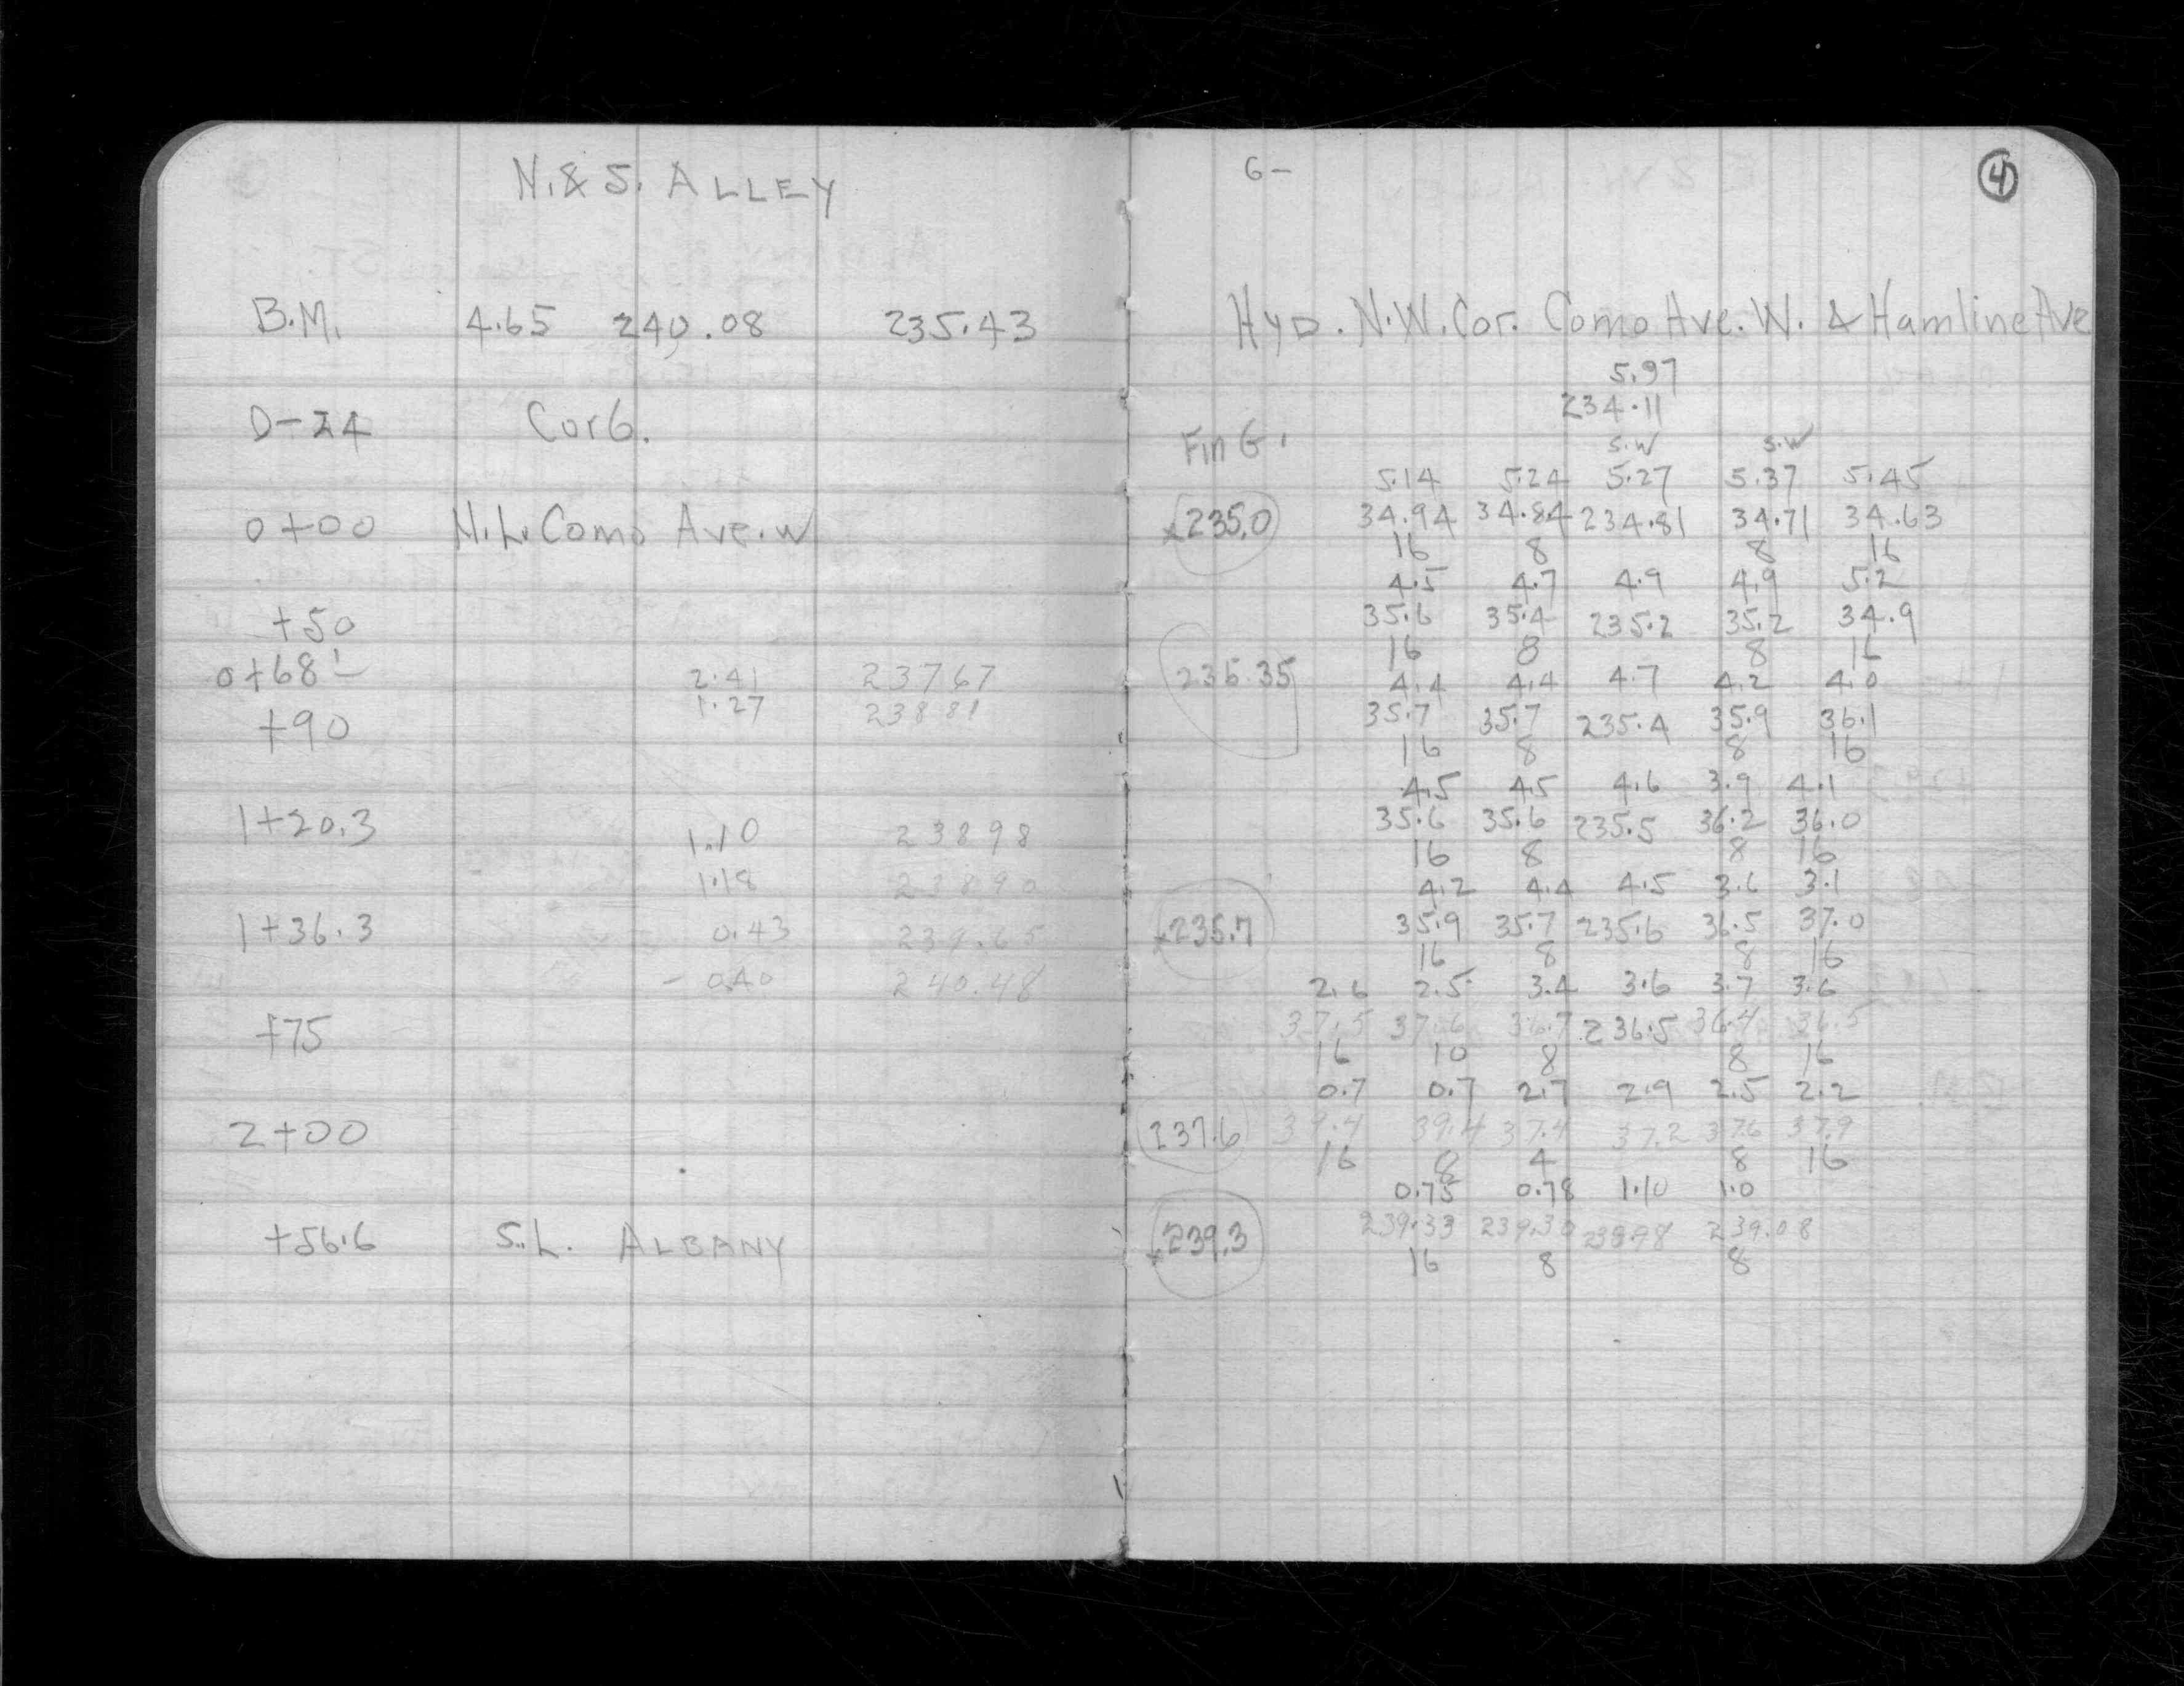 N. & S. ALLEY
B.M. 4.65 240.08 235.43
0-24 Curb.
0+00 N.L. Como Ave. W
+50
0+68 2.41 237 67
1.27 238 81
+90
1+20.3 1.10 238 98
1.18 238 90
1+36.3 0.43 239.65
- 0.40 240.48
+75
2+00
+56.6 S.L. ALBANY
6- 4
HYD. N.W. Cor. Como Ave. W. & Hamline Ave
5.97
234.11
Fin G. S.W S.W
5.14 5.24 5.27 5.37 5.45
x 235.0 34.94 34.84 234.81 34.71 34.63
16 8 8 16
4.5 4.7 4.9 4.9 5.2
35.6 35.4 235.2 35.2 34.9
16 8 8 16
235.35 4.4 4.4 4.7 4.2 4.0
35.7 35.7 235.4 35.9 36.1
16 8 8 16
4.5 4.5 4.6 3.9 4.1
35.6 35.6 235.5 36.2 36.0
16 8 8 16
4.2 4.4 4.5 3.6 3.1
x 235.7 35.9 35.7 235.6 36.5 37.0
16 8 8 16
2.6 2.5 3.4 3.6 3.7 3.6
37.5 37.6 36.7 236.5 36.4 36.5
16 10 8 8 16
0.7 0.7 2.7 2.9 2.5 2.2
237.6 39.4 39.4 37.4 37.2 37.6 37.9
16 8 4 8 16
0.75 0.78 1.10 1.0
x 239.3 239.33 239.30 238.98 239.08
16 8 8